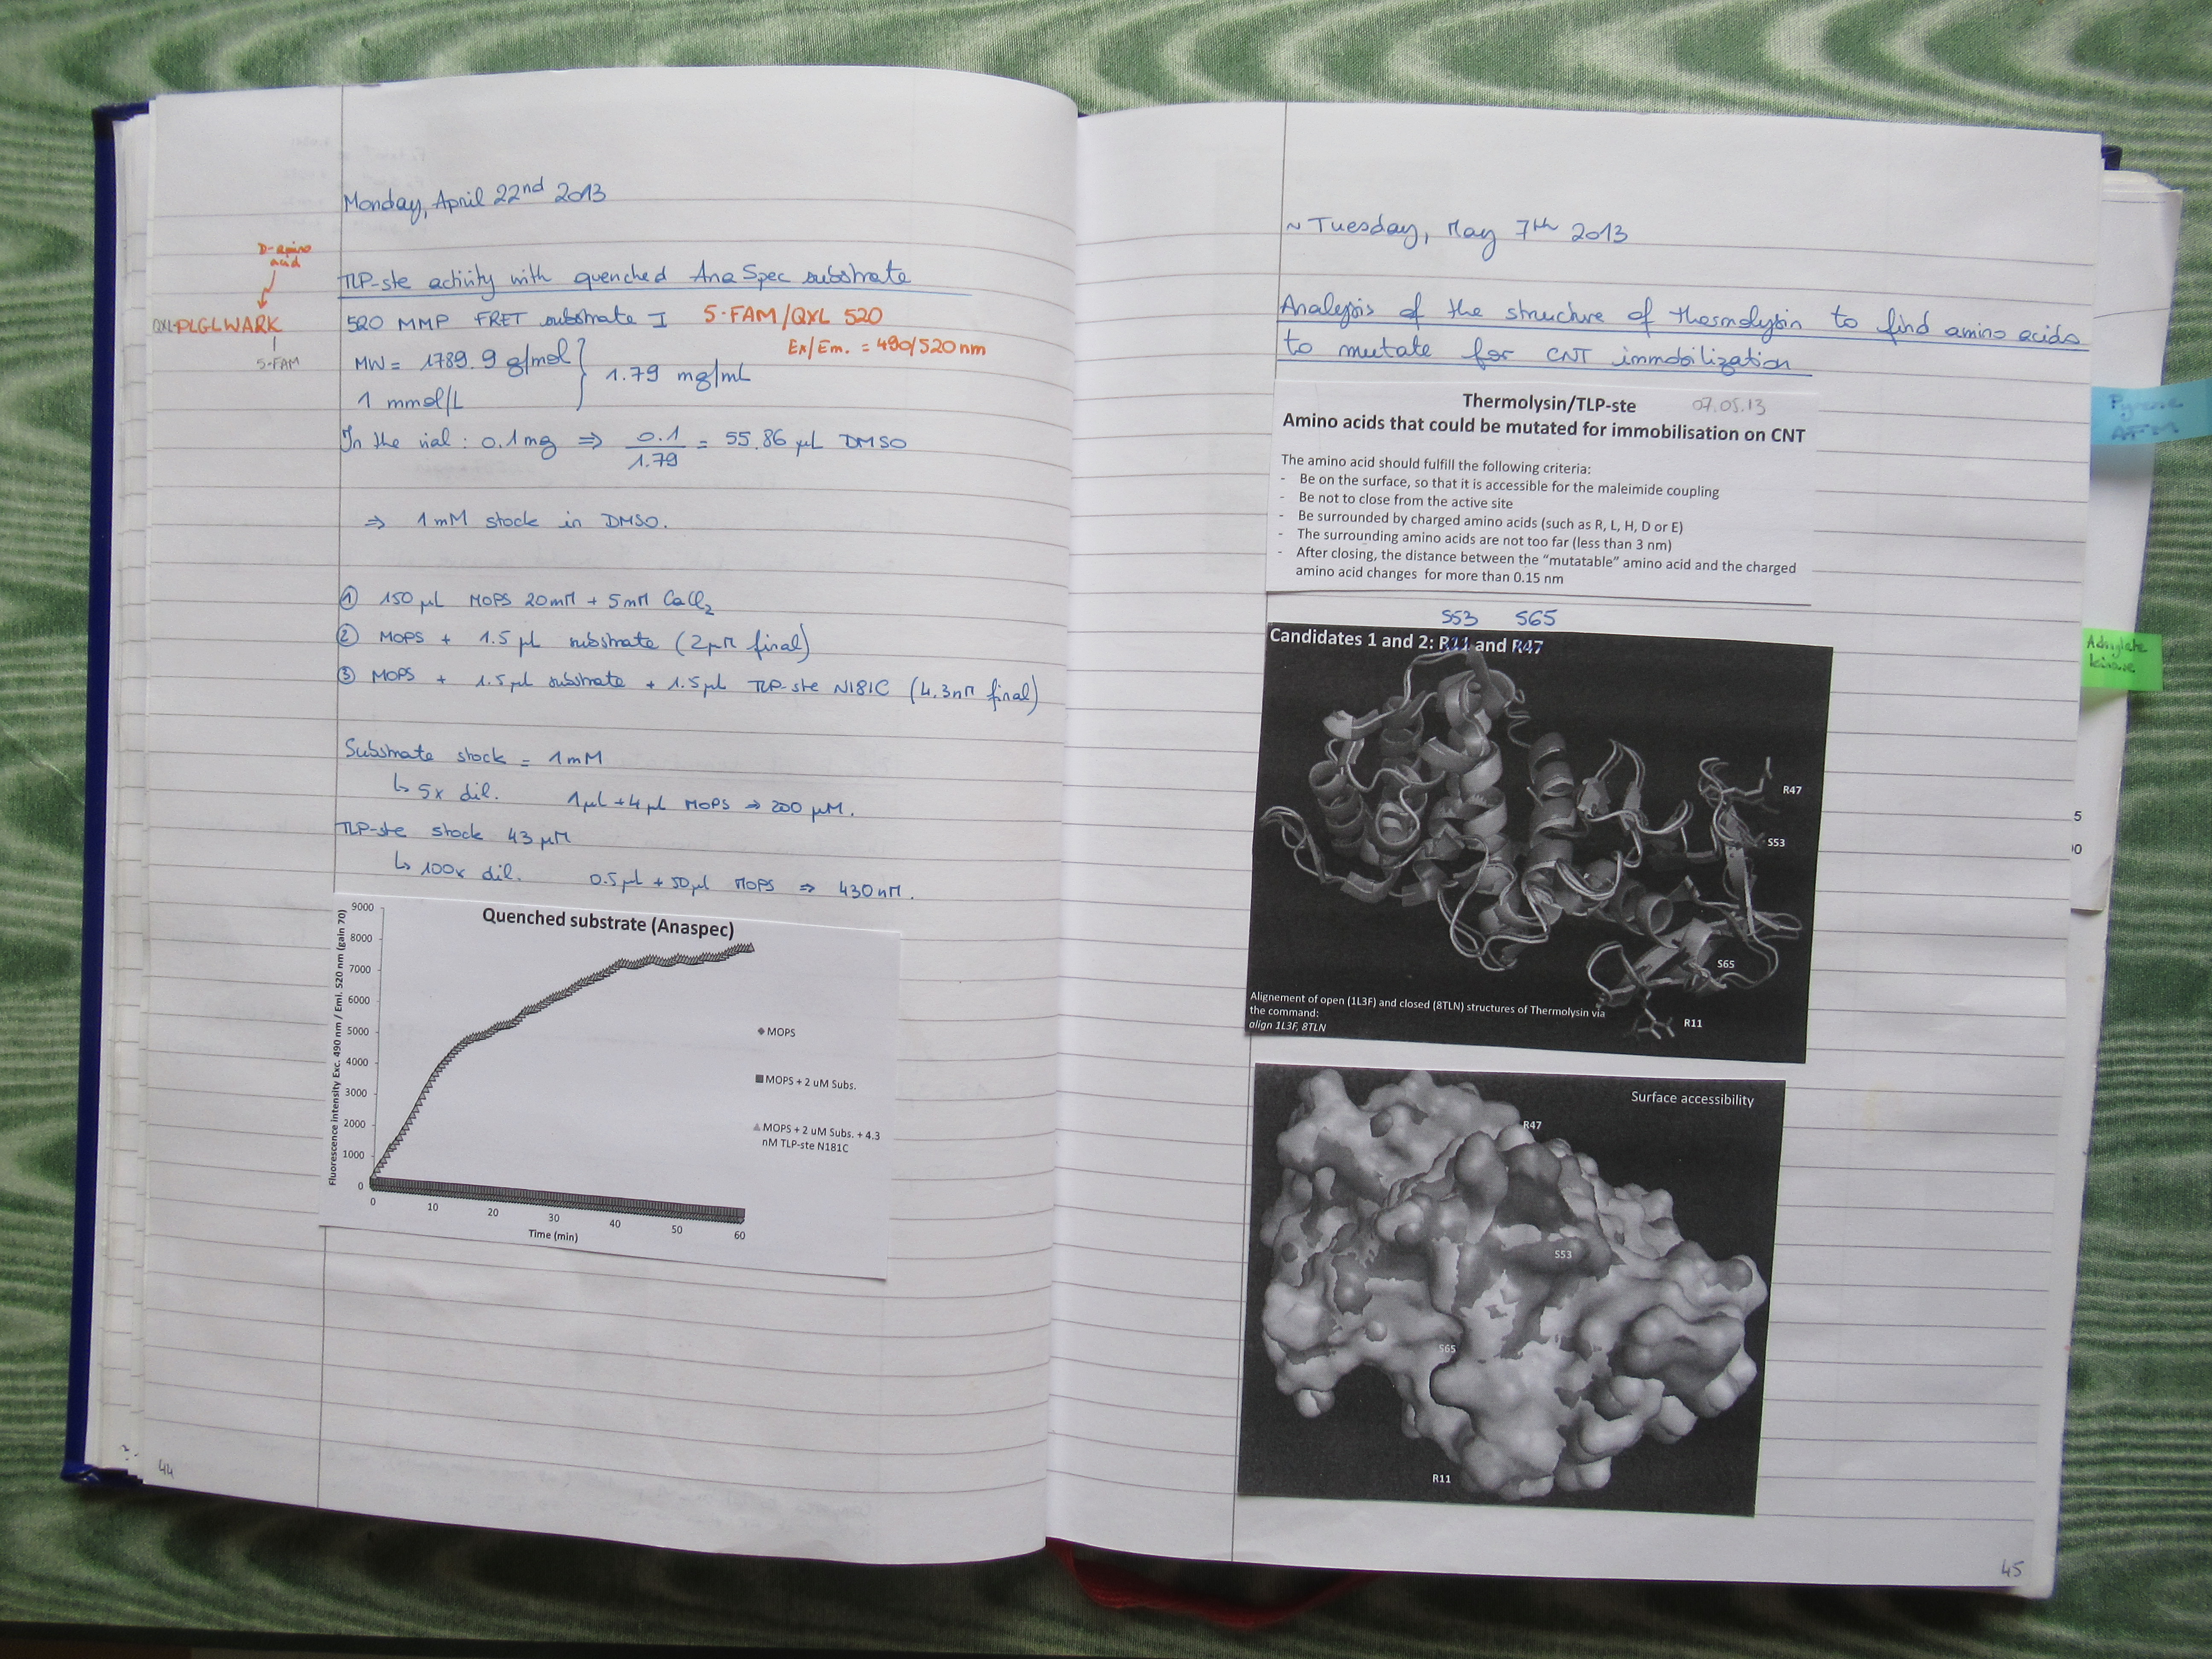 Monday, April 22nd 2013
D-amino
acid
TLP-ste activity with quenched AnaSpec substrate
QXL-PLGLWARK
5-FAM
520 MMP FRET substrate I 5-FAM/QXL 520
Ex/Em. = 490/520 nm
MW = 1789.9 g/mol
1 mmol/L
1.79 mg/mL
In the vial : 0.1 mg ⇒ 0.1/1.79 = 55.86 µL DMSO
⇒ 1 mM stock in DMSO.
① 150 µL MOPS 20mM + 5mM CaCl2
② MOPS + 1.5 µL substrate (2µM final)
③ MOPS + 1.5 µL substrate + 1.5 µL TLP-ste N181C (4.3nM final)
Substrate stock = 1mM
↳ 5x dil. 1µL + 4µL MOPS ⇒ 200 µM.
TLP-ste stock 43 µM
↳ 100x dil. 0.5µL + 50µL MOPS ⇒ 430 nM.
Quenched substrate (Anaspec)
Fluorescence intensity Exc. 490 nm / Emi. 520 nm (gain 70)
9000
8000
7000
6000
5000
4000
3000
2000
1000
0
0 10 20 30 40 50 60
Time (min)
MOPS
MOPS + 2 uM Subs.
MOPS + 2 uM Subs. + 4.3
nM TLP-ste N181C
44
~ Tuesday, May 7th 2013
Analysis of the structure of thermolysin to find amino acids
to mutate for CNT immobilization
Thermolysin/TLP-ste 07.05.13
Amino acids that could be mutated for immobilisation on CNT
The amino acid should fulfill the following criteria:
- Be on the surface, so that it is accessible for the maleimide coupling
- Be not to close from the active site
- Be surrounded by charged amino acids (such as R, L, H, D or E)
- The surrounding amino acids are not too far (less than 3 nm)
- After closing, the distance between the “mutatable” amino acid and the charged
amino acid changes for more than 0.15 nm
S53 S65
Candidates 1 and 2: R11 and R47
R47
S53
S65
R11
Alignement of open (1L3F) and closed (8TLN) structures of Thermolysin via
the command:
align 1L3F, 8TLN
Surface accessibility
R47
S53
S65
R11
45
Pyrene
AFM
Adenylate
kinase
5